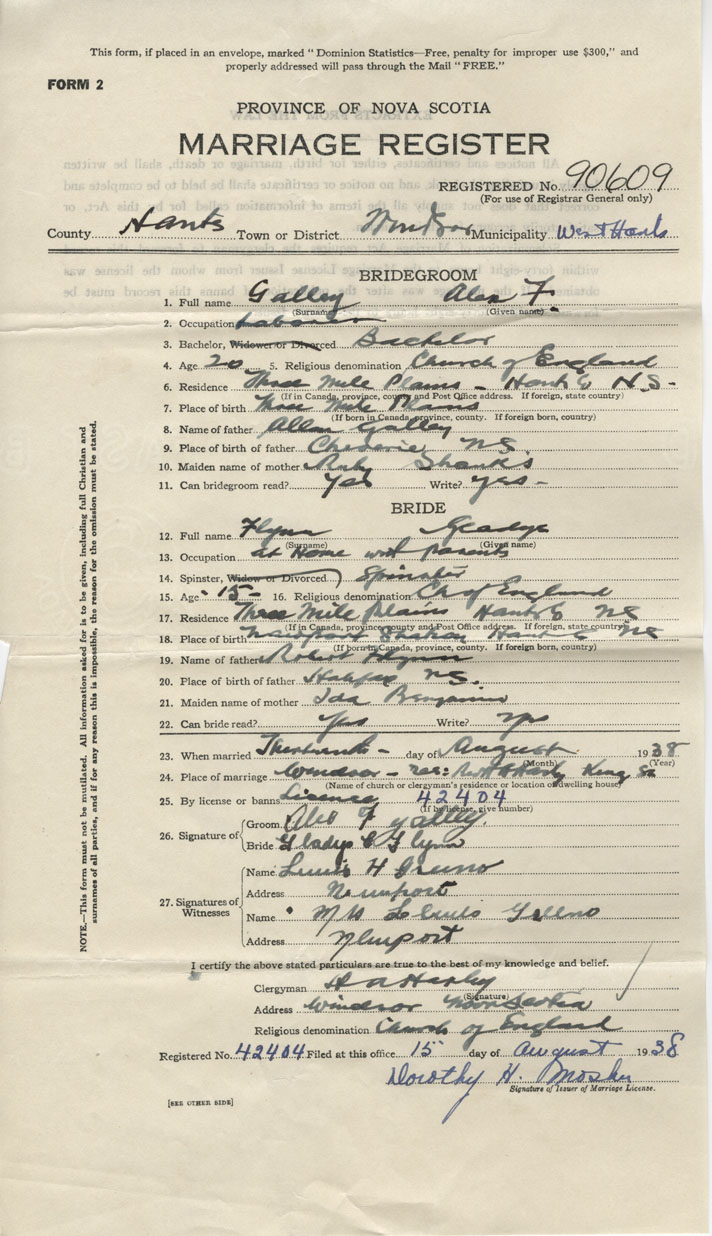 This form, if placed in an envelope, marked "Dominion Statistics—Free, penalty for improper use $300," and
properly addressed will pass through the Mail "FREE."
FORM 2
PROVINCE OF NOVA SCOTIA
MARRIAGE REGISTER
REGISTERED No. 90609
(For use of Registrar General only)
County Hants Town or District Windsor Municipality West Hants
BRIDEGROOM
1. Full name Galley Alex F.
(Surname) (Given name)
2. Occupation Laborer
3. Bachelor, Widower or Divorced Bachelor
4. Age 20 5. Religious denomination Church of England
6. Residence Three Mile Plains - Hants Co N.S-
(If in Canada, province, county and Post Office address. If foreign, state country)
7. Place of birth Three Mile Plains
(If born in Canada, province, county. If foreign born, country)
8. Name of father Allan Galley
9. Place of birth of father Cheverie NS.
10. Maiden name of mother Ruby Shanks
11. Can bridegroom read? Yes Write? yes -
BRIDE
12. Full name Flynn Gladys
(Surname) (Given name)
13. Occupation at Home with parents
14. Spinster, Widow or Divorced) Spinster
15. Age -15- 16. Religious denomination Ch of England
17. Residence Three Mile Plains Hants Co NS
(If in Canada, province, county and Post Office address. If foreign, state country)
18. Place of birth Newport Station Hants Co NS
(If born in Canada, province, county. If foreign born, country)
19. Name of father Robert Flynn
20. Place of birth of father Halifax NS.
21. Maiden name of mother Ida Benjamin
22. Can bride read? Yes Write? Yes
23. When married day of August 1938
(Month) (Year)
24. Place of marriage Windsor - res: King St
(Name of church or clergyman's residence or location of dwelling house)
25. By license or banns License 42404
(If by license, give number)
26. Signature of
Groom Alex F galley.
Bride Gladys Flynn
27. Signatures of Witnesses
Name Lewis H Greeno
Address Newport
Name Mrs Lewis Greeno
Address Newport
I certify the above stated particulars are true to the best of my knowledge and belief.
Clergyman Harley
(Signature)
Address Windsor Nova Scotia
Religious denomination Church of England
Registered No. 42404 Filed at this office 15 day of August 1938
Dorothy H. Mosher
Signature of Issuer of Marriage License.
[SEE OTHER SIDE]
NOTE.—This form must not be mutilated. All information asked for is to be given, including full Christian and
surnames of all parties, and if for any reason this is impossible, the reason for the omission must be stated.